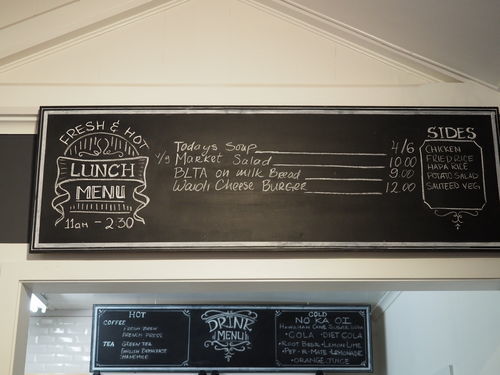 FRESH & HOT
LUNCH
MENU
11am - 2 30
Todays Soup 4/6
v/g Market Salad 10.00
BLTA on Milk Bread 9.00
Waioli Cheese Burger 12.00
SIDES
CHICKEN
FRIED RICE
HAPA RICE
POTATO SALAD
SAUTEED VEG
HOT
COFFEE
FRESH BREW
FRENCH PRESS
TEA GREEN TEA
ENGLISH BREAKFAST
CHAMOMILE
DRINK
MENU
COLD
NO KA OI
HAWAIIAN CANE SUGAR SODA
• COLA • DIET COLA
• ROOT BEER • LEMON LIME
• PEP-R-MATE • LEMONADE
• ORANGE JUICE